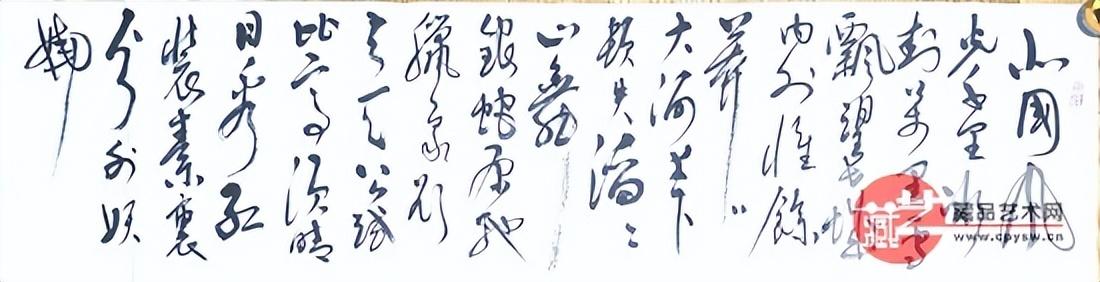 北國風
光千里冰
封萬里雪
飄望長城
内外惟餘
莽〻
大河上下
頓失滔〻
山舞
銀蛇原馳
臘象欲
與天公試
比高須晴
日看紅
裝素裹
分外妖
嬈
藏品艺术网
www.cpysw.cn